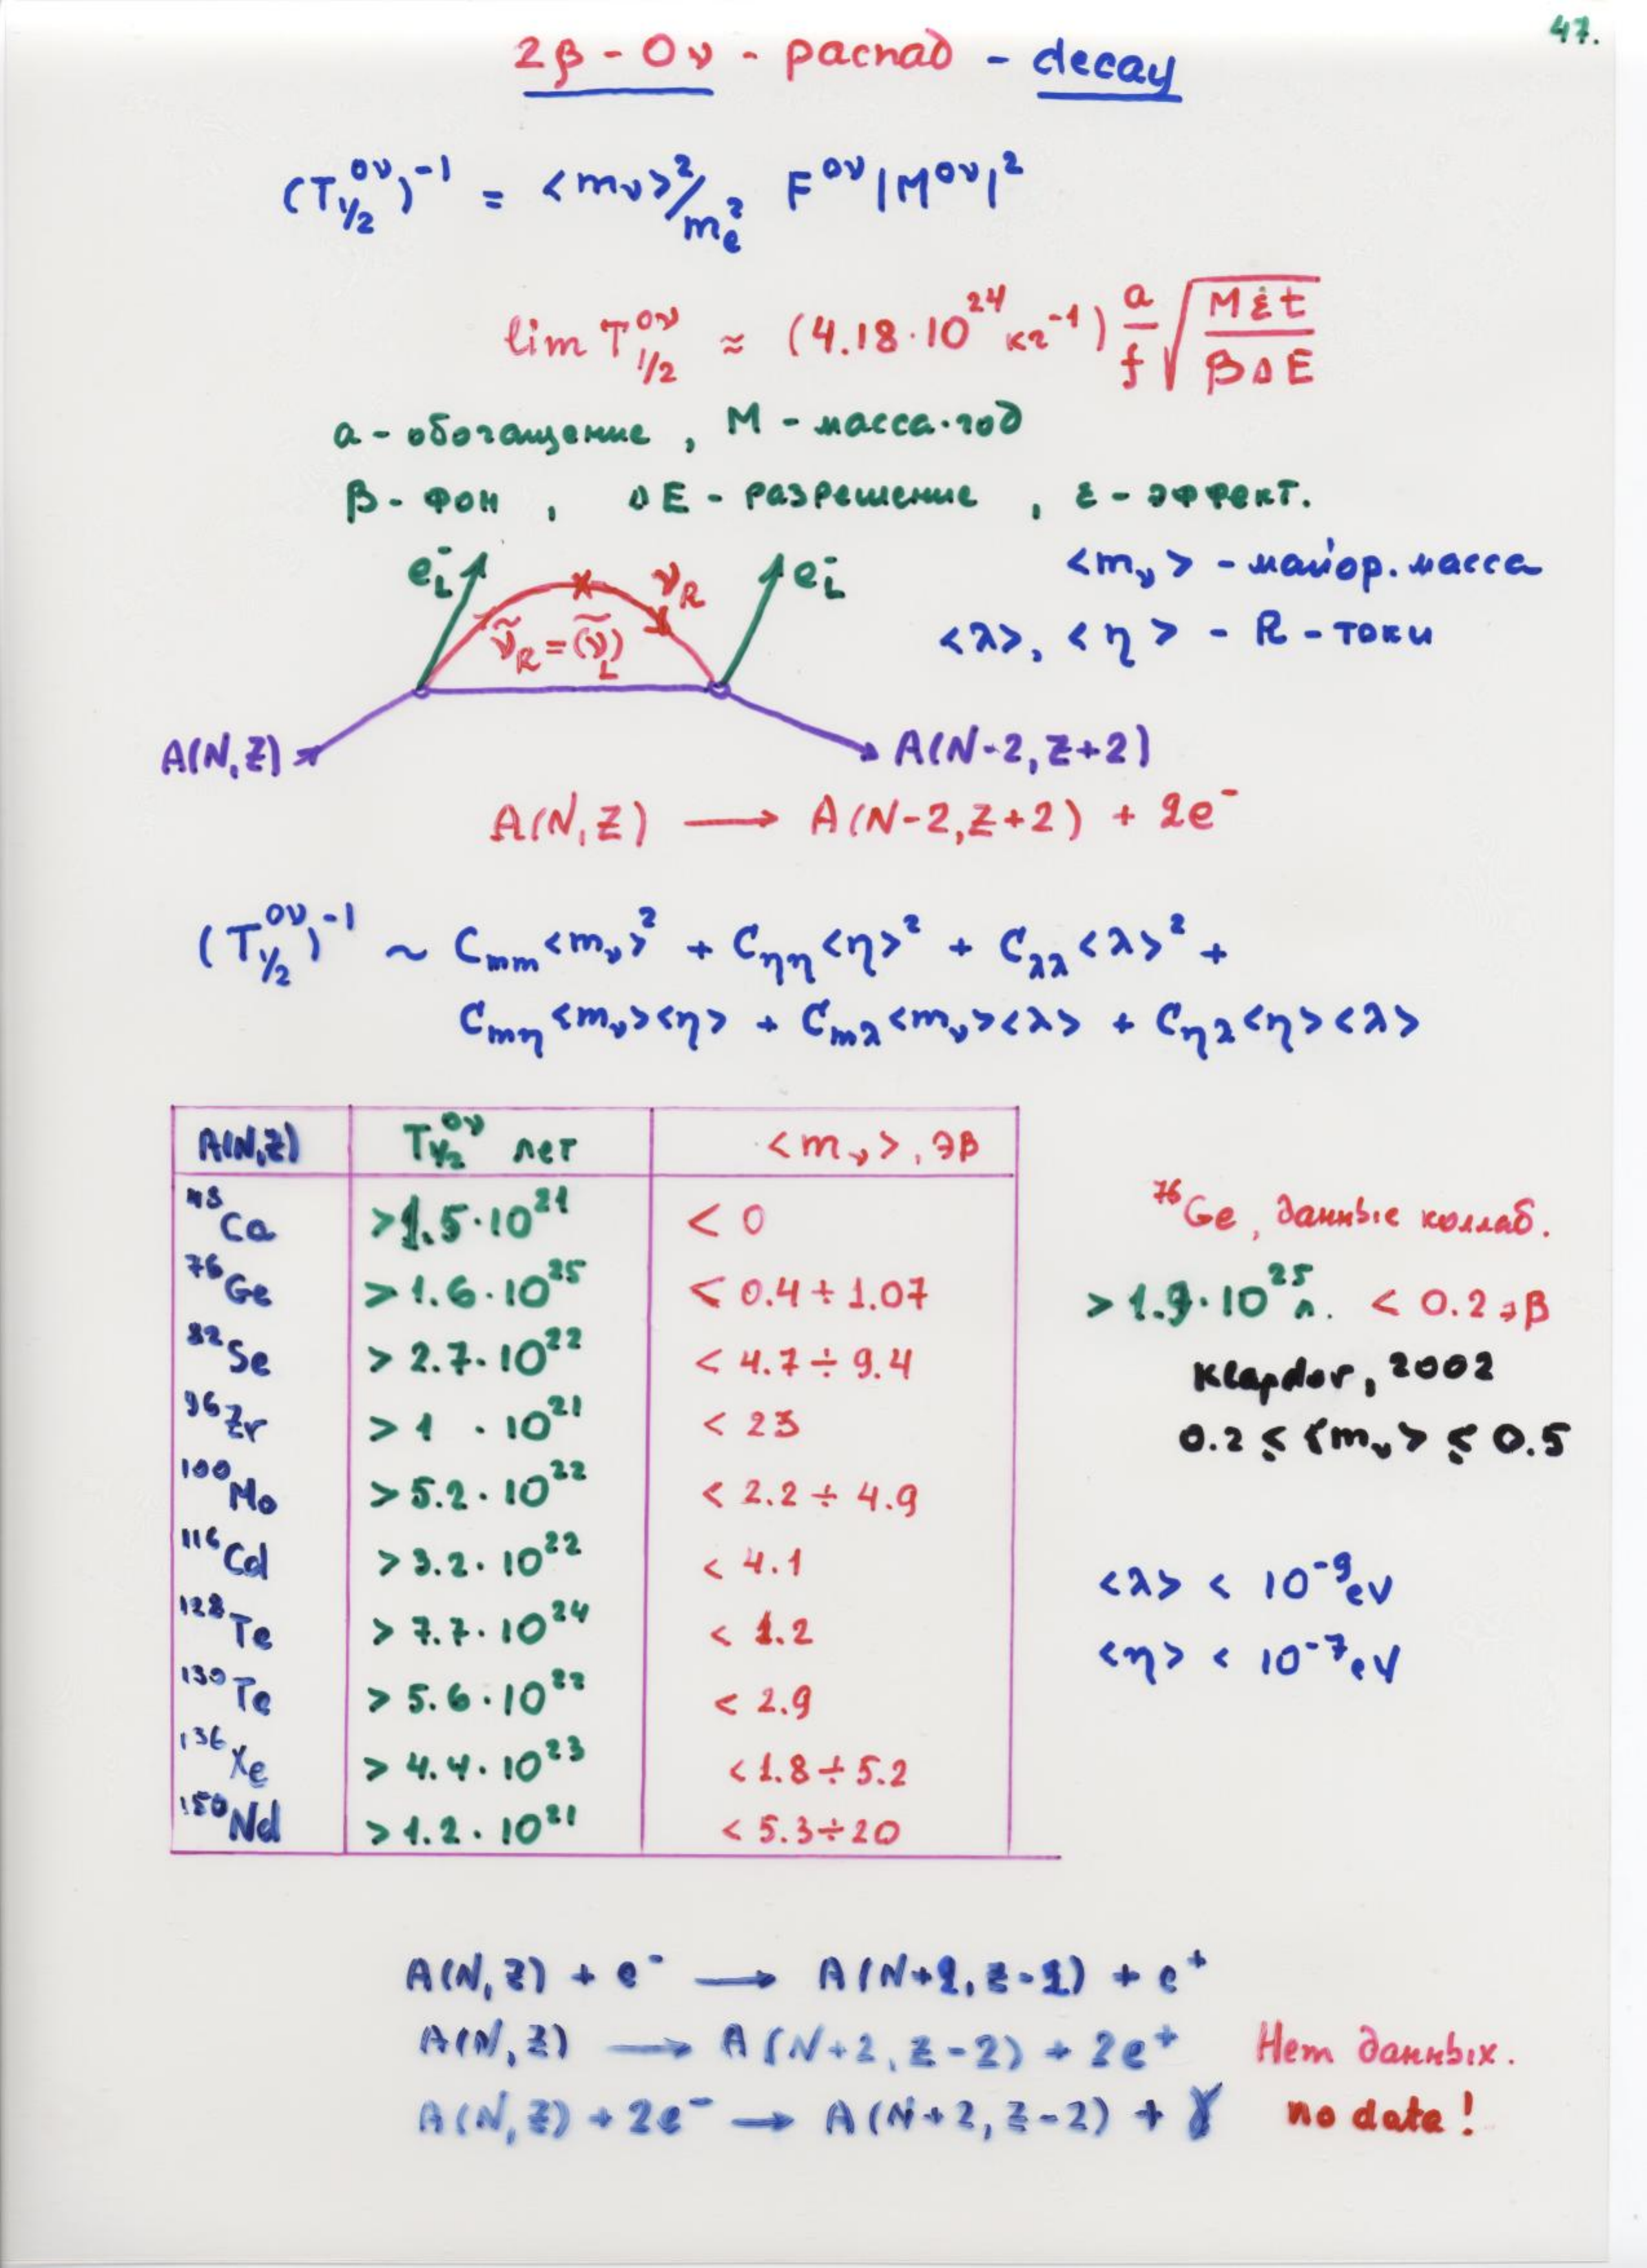 47.
2β - 0ν - распад - decay
(T½^0ν)^-1 = <mν>²/mₑ² F^0ν |M^0ν|²
lim T½^0ν ≈ (4.18·10^24 кг^-1) a/f √(Mεt/βΔE)
a - обогащение, M - масса·год
β - фон, ΔE - разрешение, ε - эффект.
e⁻L νR e⁻L <mν> - майор. масса
ν̃R = (ν̃)L <λ>, <η> - R - токи
A(N,Z) A(N-2,Z+2)
A(N,Z) ⟶ A(N-2,Z+2) + 2e⁻
(T½^0ν)^-1 ~ Cmm<mν>² + Cηη<η>² + Cλλ<λ>² +
Cmη<mν><η> + Cmλ<mν><λ> + Cηλ<η><λ>
A(N,Z) T½^0ν лет <mν>, эВ
48Ca >1.5·10^21 < 0
76Ge > 1.6·10^25 < 0.4 ÷ 1.07
82Se > 2.7·10^22 < 4.7 ÷ 9.4
96Zr > 1 ·10^21 < 23
100Mo > 5.2·10^22 < 2.2 ÷ 4.9
116Cd > 3.2·10^22 < 4.1
128Te > 7.7·10^24 < 1.2
130Te > 5.6·10^22 < 2.9
136Xe > 4.4·10^23 < 1.8 ÷ 5.2
150Nd > 1.2·10^21 < 5.3 ÷ 20
76Ge, данные коллаб.
> 1.9·10^25 л. < 0.2 эВ
Klapdor, 2002
0.2 ≤ <mν> ≤ 0.5
<λ> < 10^-9 eV
<η> < 10^-7 eV
A(N,Z) + e⁻ ⟶ A(N+2,Z-2) + e⁺
A(N,Z) ⟶ A(N+2,Z-2) + 2e⁺ Нет данных.
A(N,Z) + 2e⁻ ⟶ A(N+2,Z-2) + γ no data!